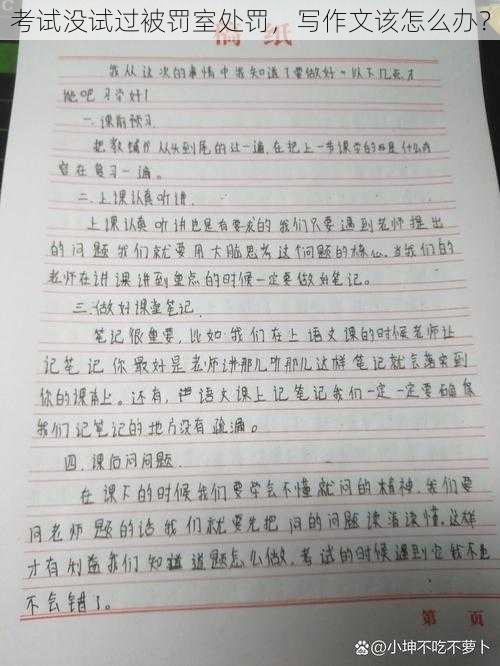 考试没试过被罚室处罚，写作文该怎么办?
稿纸
我从这次的事情中我知道了要做好。以下几点才
能吧习学好!
一.课前预习.
把教城办从头到尾的过一遍,在把上一节课学的的是什么内
容在复习一遍。
二.上课认真听讲.
上课认真听讲也是有要求的我们只要遇到老师提出
的问题我们就要用大脑思考这个问题的核心,当我们的
老师在讲课讲到重点的时候一定要做好笔记。
三.做好课堂笔记.
笔记很重要,比如:我们在上语文课的时候老师让
记笔记你最好是老师讲那儿听那儿这样笔记就会落实到
你的课本上。还有,语文课上记笔记我们一定一定要确保
我们记笔记的地方没有疏漏。
四.课后问问题.
在课下的时候我们要学会不懂就问的精神,我们要
问老师题的话我们就要先把问的问题读清读懂,这样
才有利益我们知道道题怎么做,考试的时候遇到它就不
不会错了。
第 页
@小坤不吃不萝卜